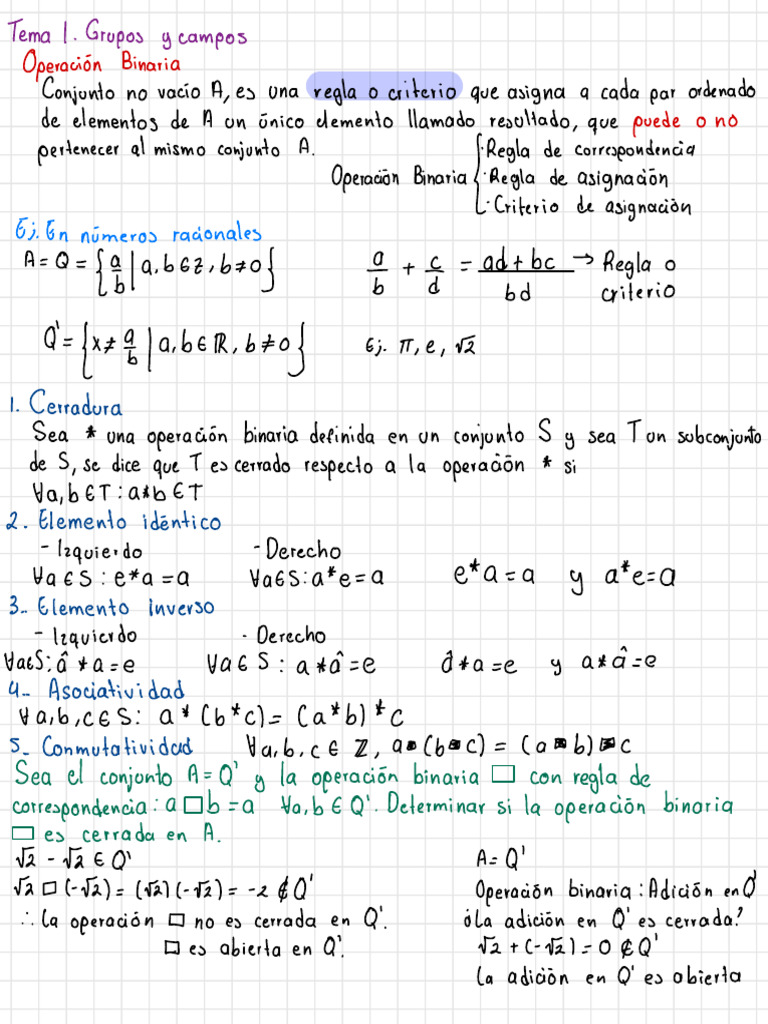 Tema 1. Grupos y campos
Operación Binaria
Conjunto no vacío A, es una regla o criterio que asigna a cada par ordenado
de elementos de A un único elemento llamado resultado, que puede o no
pertenecer al mismo conjunto A.
Operación Binaria { · Regla de correspondencia
· Regla de asignación
· Criterio de asignación
Ej. En números racionales
A = Q = { a/b | a, b ∈ Z, b ≠ 0 }
a/b + c/d = ad + bc / bd → Regla o
criterio
Q' = { x ≠ a/b | a, b ∈ ℝ, b ≠ 0 } Ej. π, e, √2
1. Cerradura
Sea * una operación binaria definida en un conjunto S y sea T un subconjunto
de S, se dice que T es cerrado respecto a la operación * si
∀a, b ∈ T : a*b ∈ T
2.- Elemento idéntico
- Izquierdo - Derecho
∀a ∈ S : e*a = a ∀a ∈ S : a*e = a e*a = a y a*e = a
3.- Elemento inverso
- Izquierdo - Derecho
∀a ∈ S : â * a = e ∀a ∈ S : a * â = e â * a = e y a * â = e
4.- Asociatividad
∀a, b, c ∈ S : a * (b * c) = (a * b) * c
5.- Conmutatividad ∀a, b, c ∈ ℤ, a ▪ (b ▪ c) = (a ▪ b) ▪ c
Sea el conjunto A = Q' y la operación binaria □ con regla de
correspondencia : a □ b = a ∀a, b ∈ Q'. Determinar si la operación binaria
□ es cerrada en A.
√2 - √2 ∈ Q'
√2 □ (-√2) = (√2)(-√2) = -2 ∉ Q'
∴ la operación □ no es cerrada en Q'.
□ es abierta en Q'.
A = Q'
Operación binaria : Adición en Q'
¿La adición en Q' es cerrada?
√2 + (-√2) = 0 ∉ Q'
La adición en Q' es abierta